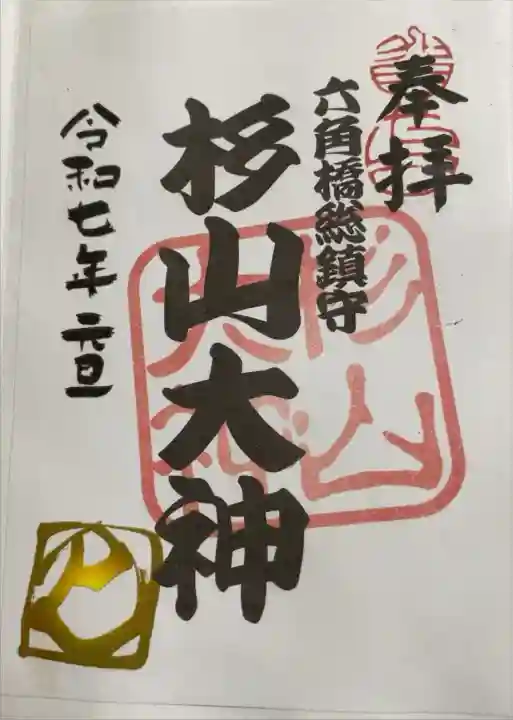 奉拝
六角橋総鎮守
杉山大神
令和七年 元旦
杉山
大神